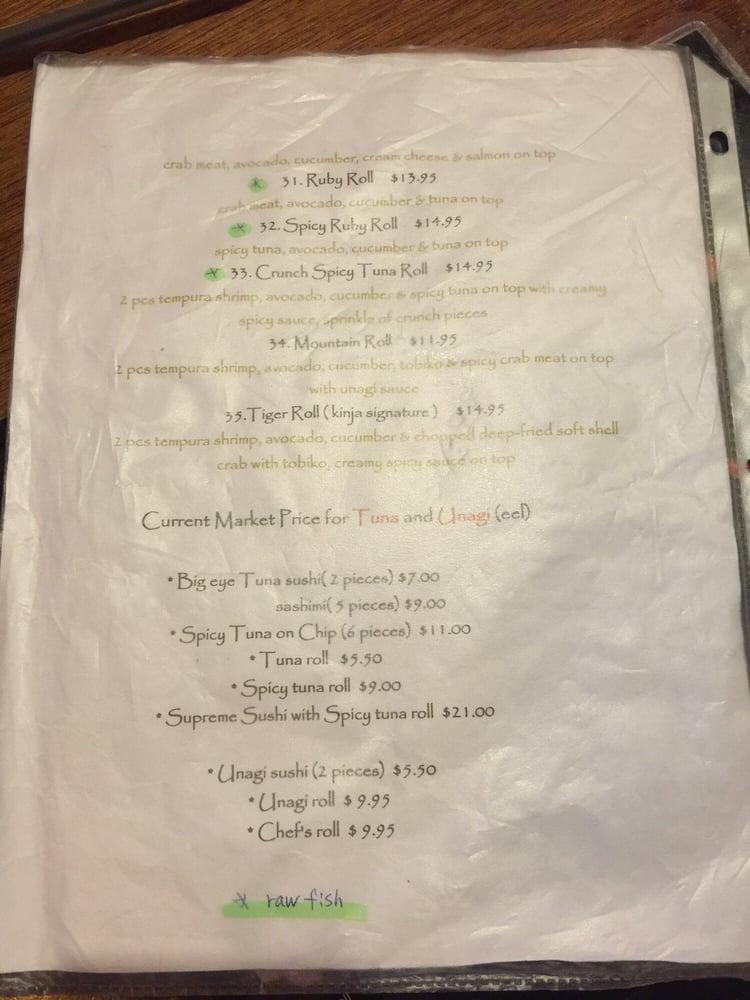 crab meat, avocado, cucumber, cream cheese & salmon on top
* 31. Ruby Roll $13.95
crab meat, avocado, cucumber & tuna on top
* 32. Spicy Ruby Roll $14.95
spicy tuna, avocado, cucumber & tuna on top
* 33. Crunch Spicy Tuna Roll $14.95
2 pcs tempura shrimp, avocado, cucumber & spicy tuna on top with creamy
spicy sauce, sprinkle of crunch pieces
34. Mountain Roll $11.95
2 pcs tempura shrimp, avocado, cucumber, tobiko & spicy crab meat on top
with unagi sauce
35.Tiger Roll (kinja signature) $14.95
2 pcs tempura shrimp, avocado, cucumber & chopped deep-fried soft shell
crab with tobiko, creamy spicy sauce on top
Current Market Price for Tuna and Unagi (eel)
• Big eye Tuna sushi( 2 pieces) $7.00
sashimi( 5 pieces) $9.00
• Spicy Tuna on Chip (6 pieces) $11.00
• Tuna roll $5.50
• Spicy tuna roll $9.00
• Supreme Sushi with Spicy tuna roll $21.00
• Unagi sushi (2 pieces) $5.50
• Unagi roll $9.95
• Chef's roll $9.95
* raw fish